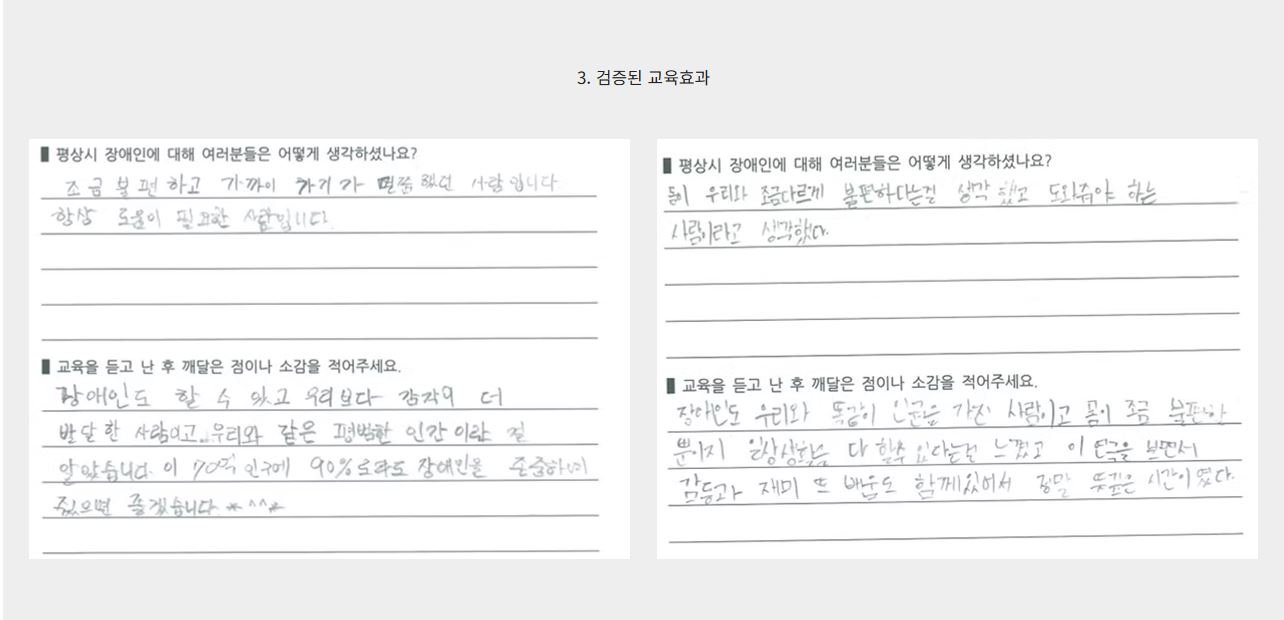 3. 검증된 교육효과
평상시 장애인에 대해 여러분들은 어떻게 생각하셨나요?
조금 불편하고 가까이 가기가 했던 사람입니다.
항상 도움이 필요한 사람입니다.
교육을 듣고 난 후 깨달은 점이나 소감을 적어주세요.
장애인도 할 수 있고 우리보다 감각이 더
발달한 사람이고, 우리와 같은 평범한 인간이란 걸
알았습니다. 이 70억 인구에 90%로라도 장애인을 존중하여
줬으면 좋겠습니다. *^^*
평상시 장애인에 대해 여러분들은 어떻게 생각하셨나요?
우리와 조금다르게 불편하다는걸 생각했고 도와줘야 하는
사람이라고 생각했다.
교육을 듣고 난 후 깨달은 점이나 소감을 적어주세요.
장애인도 우리와 똑같이 인권을 가진 사람이고 몸이 조금 불편한
뿐이지 일상생활을 다 할수 있다는걸 느꼈고 이 연극을 보면서
감동과 재미 또 배움도 함께있어서 정말 뜻깊은 시간이였다.